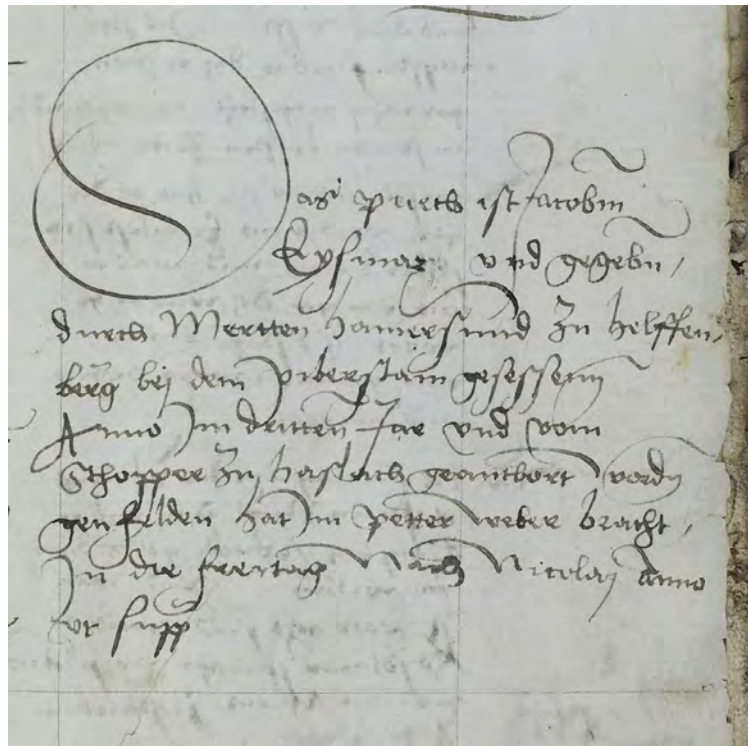 Das puech ist Jacobm
Eysmar vnd gegebn,
durch Mertten Hamersmid zu Helffen,
berg bei dem piberstain gesessenn
Anno Im dritten Jar vnd vom
Schopper zu Haslach geantbort wordn
gen felden hat Im petter weber bracht,
In die freitag Nach Nicolaj Anno
vt supp